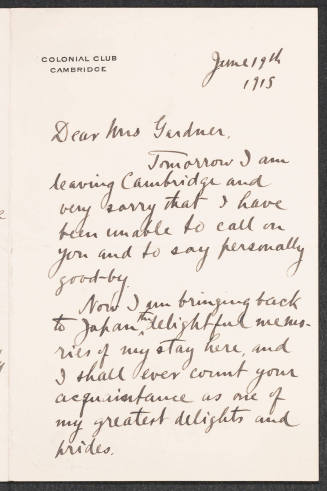 COLONIAL CLUB
CAMBRIDGE
June 19th
1915
Dear Mrs Gardner,
Tomorrow I am
leaving Cambridge and
very sorry that I have
been unable to call on
you and to say personally
good-by.
Now I am bringing back
to Japan, the delightful memo-
ries of my stay here, and
I shall ever count your
acquaintance as one of
my greatest delights and
prides.